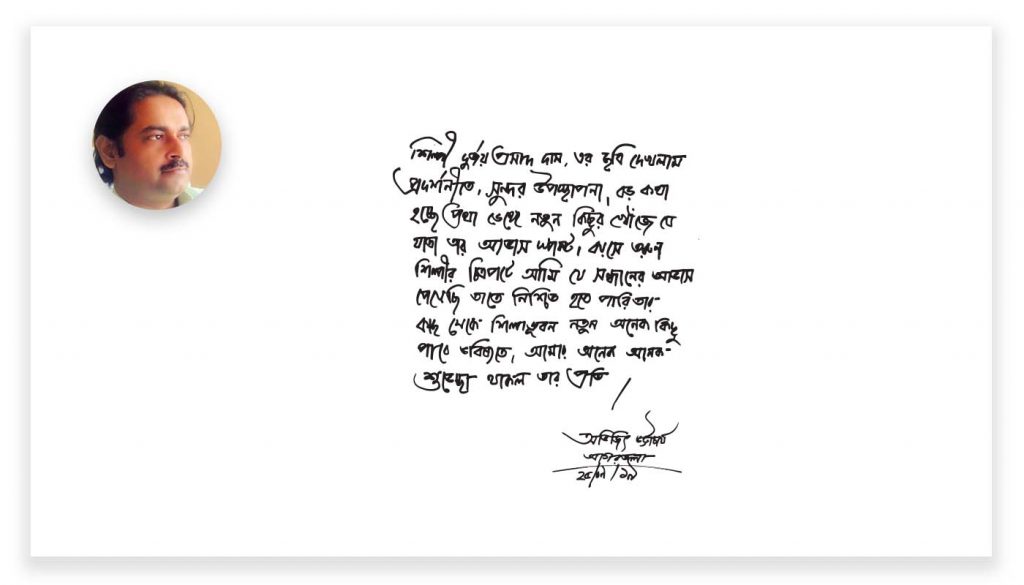 শিল্পী দুর্জয় প্রসাদ দাস, ওর ছবি দেখলাম
প্রদর্শনীতে, সুন্দর উপস্থাপনা, বড় কথা
হচ্ছে প্রথা ভেঙ্গে নতুন কিছুর খোঁজে যে
যাত্রা তার আভাস স্পষ্ট, বয়সে তরুণ
শিল্পীর চিত্রপটে আমি যে সন্ধানের আভাস
পেয়েছি তাতে নিশ্চিত হতে পারি তার
কাছ থেকে শিল্পভুবন নতুন অনেক কিছু
পাবে ভবিষ্যতে, আমার অনেক অনেক
শুভেচ্ছা থাকল তার প্রতি
ভট্টাচার্য
আগরতলা